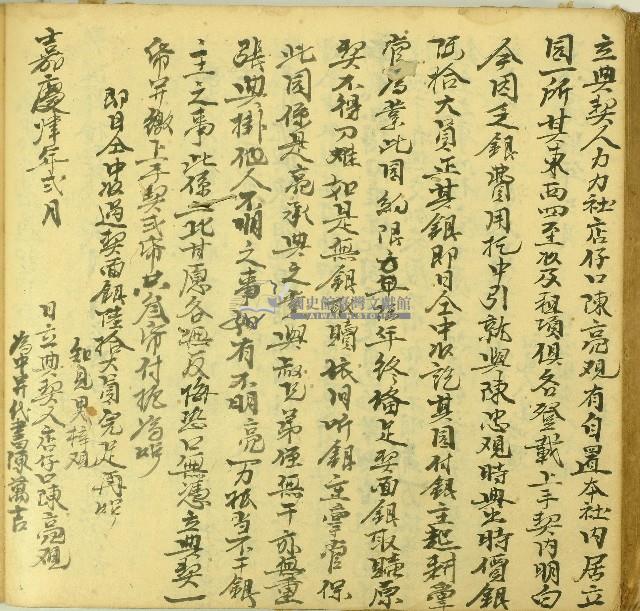 立典契人力力社店仔口陳亮觀有自置本社內居立
園一所其東西四至以及租項俱各登載上手契內明白
今因乏銀費用托中引就與陳忠觀時典出時價銀
陸拾大員正其銀即日仝中收訖其園付銀主起耕掌
管為業此園約限 年終備足契面銀取贖原
契不得刁難如是無銀取贖依旧听銀主掌管保
此園係是亮承典之業與叔兄弟侄無干亦無重
張典掛他人不明之事如有不明亮一力抵當不干銀
主之事此係二比甘愿各無反悔恐口無憑立典契一
帋并繳上手契弍帋共叁帋付执為炤
即日仝中收過契面銀陸拾大員完足再炤
嘉慶 年弍月 日立典契人店仔口陳亮觀
知見男 觀
為中并代書陳萬吉
國史館臺灣文獻館
TAIWAN HISTORICA